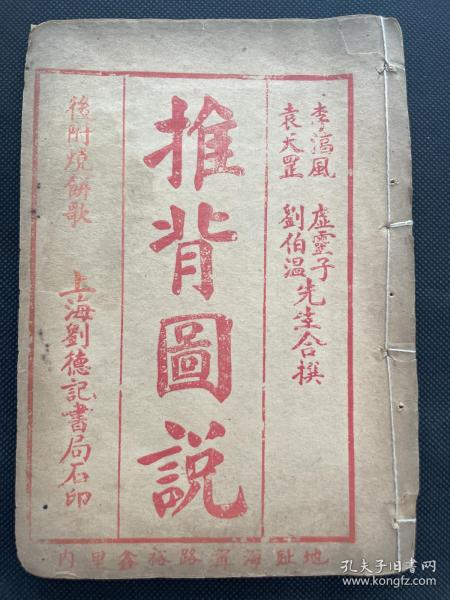 李淳風 虛靈子
袁天罡 劉伯温先生合撰
推背圖説
後附燒餅歌 上海劉德記書局石印
地趾海甯路裕鑫里内
孔夫子旧书网
book.kongfz.com